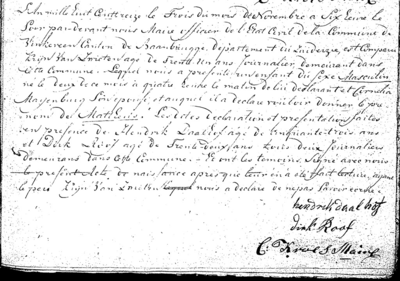 L'An mille huit Cent treize le Trois du mois de Novembre a Six heures le
Soir par devant nous Maire officier de l'Etat Civil de la Commune de
Canton de Departement du Zuiderzee, est Comparu
Zijn Van agé de Trente Un ans Journalier, demeurant dans
Cette Commune. Lequel nous a presenté un enfant du sexe Masculin
né le deux de ce mois a quatre heures le matin de lui declarant et Cornelia
Son epouse, et auquel il a declaré vouloir donner le pré
nom de Matheus. Les dites declaration et presentation faites
en presence de Hendrik Daalhof agé de Cinquante trois ans
et Dirk Roof agé de Trente ans tous deux Journaliers
demeurans dans Cette Commune. Et ont les temoins Signé avec nous
le present acte de naissance apres que leur en a été fait lecture,
le pere Zijn Van nous a declaré de ne pas Savoir ecrire.
hendrick daal hof
dirk Roof
C: Krol S Maire